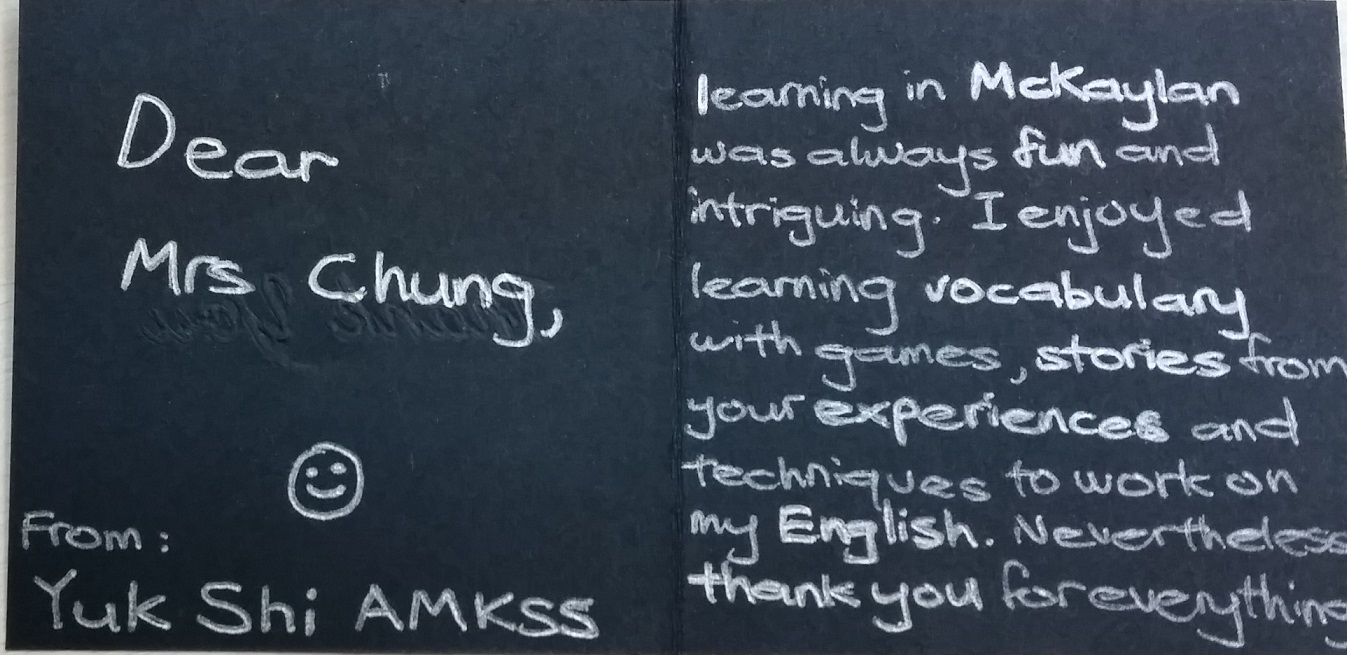 Dear
Mrs Chung,
From:
Yuk Shi AMKSS
learning in McKaylan
was always fun and
intriguing. I enjoyed
learning vocabulary
with games, stories from
your experiences and
techniques to work on
my English. Nevertheless
thank you for everything